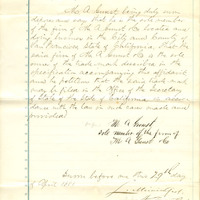 M. A. Gunst, being duly sworn
deposes and says that he is the sole member
of the firm of M. A. Gunst & Co located and
doing business in the City and County of
San Francisco, State of California, that the
said firm of M. A. Gunst & Co is the sole
owner of the trade mark described in the
specification accompanying this affidavit
and he further asks that the same
may be filed in the Office of the Secretary
of State of the State of California in accor-
dance with the law in such case made and
provided
M. A. Gunst
sole member of the firm of
M. A. Gunst & Co
Sworn before me this 29th day
of April